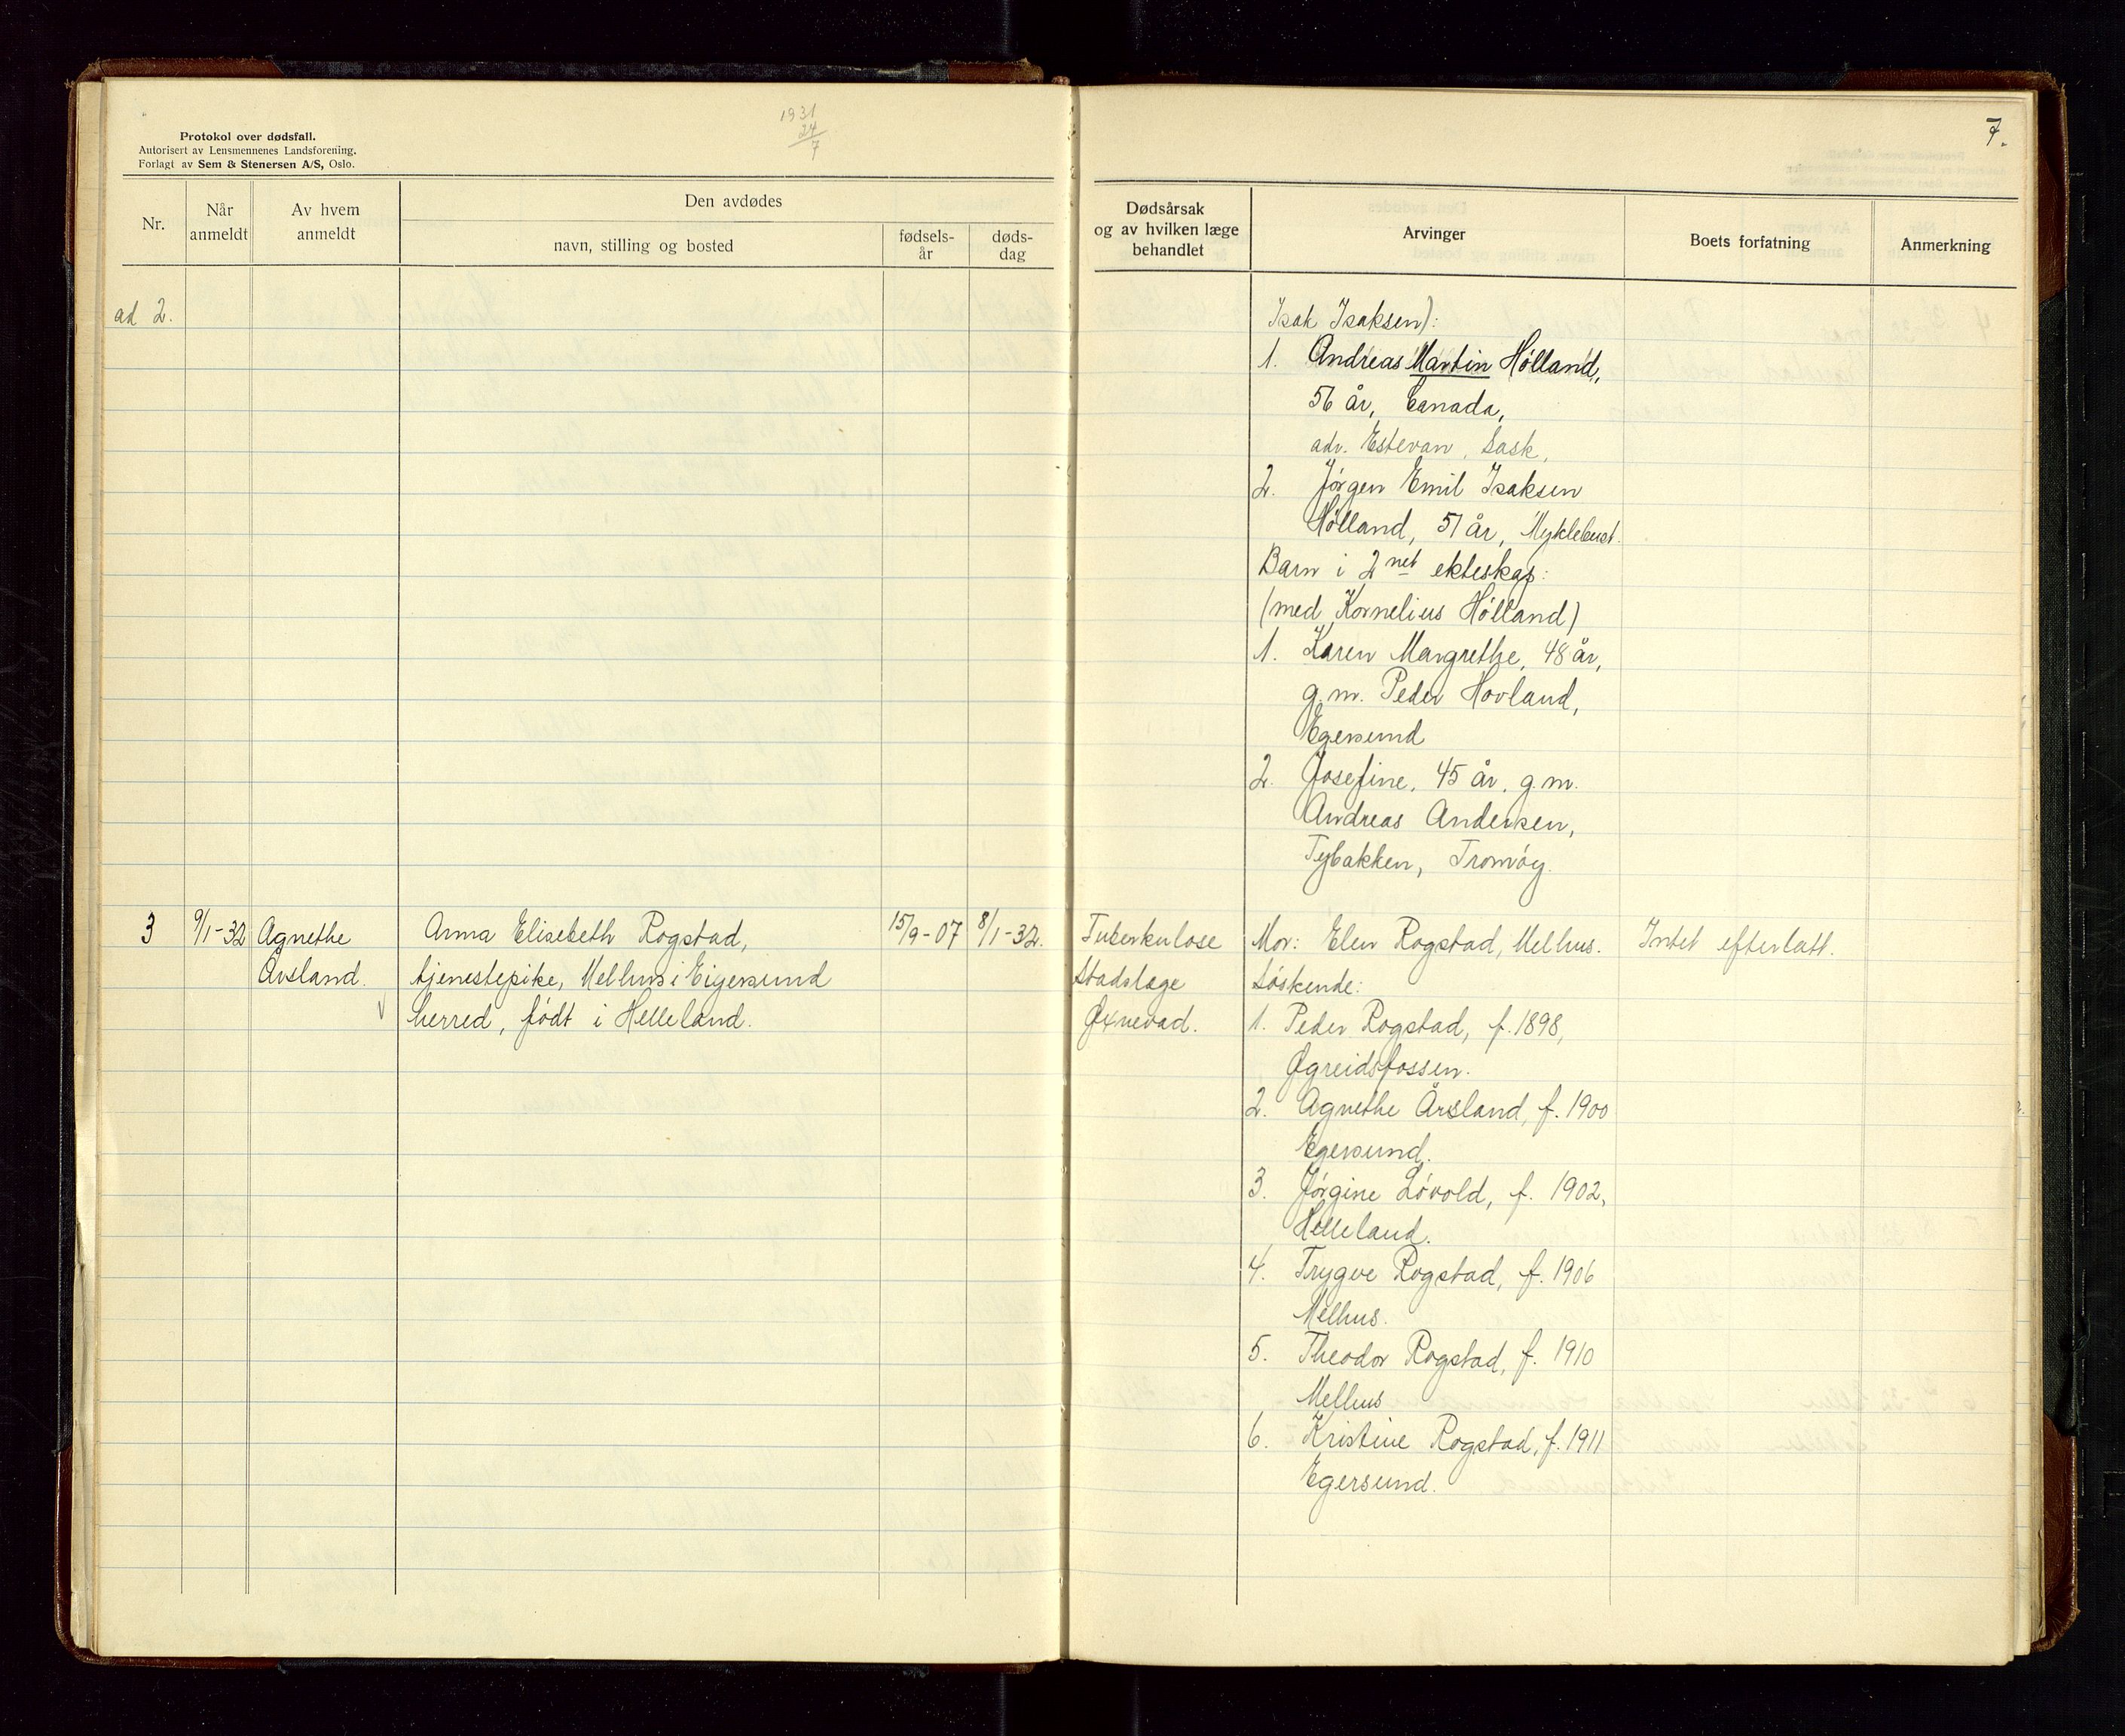 Protokol over dødsfall.
Autorisert av Lensmennenes Landsforening.
Forlagt av Sem & Stenersen A/S, Oslo.
1931
24
7
Nr.
Når anmeldt
Av hvem anmeldt
Den avdødes
navn, stilling og bosted
fødsels-år
døds-dag
ad 2.
3
9/1-32
Agnethe
Årsland.
Anna Elisebeth Rogstad,
tjenestepike, Melhus i Eigersund
herred, født i Helleland.
15/9-07
8/1-32.
7.
Dødsårsak
og av hvilken læge
behandlet
Arvinger
Boets forfatning
Anmerkning
Isak Isaksen):
1. Andreas Martin Hølland,
56 år, Canada,
adr. Estevan, Sask,
2. Jørgen Emil Isaksen
Hølland, 51 år, Myklebust.
Barn i 2net ekteskap:
(med Kornelius Hølland)
1. Karen Margrethe, 48 år,
g.m. Peder Hovland,
Egersund
2. Josefine, 45 år, g.m.
Andreas Andersen,
Tybakken, Tromøy.
Tuberkulose
Stadslæge
Øxnevad.
Mor: Elen Rogstad, Melhus.
Søskende:
1. Peder Rogstad, f. 1898,
Øgreidsfossen.
2. Agnethe Årsland, f. 1900
Egersund.
3. Jørgine Løvold, f. 1902,
Helleland.
4. Trygve Rogstad, f. 1906
Melhus.
5. Theodor Rogstad, f. 1910
Melhus
6. Kristine Rogstad, f. 1911
Egersund.
Intet efterlatt.